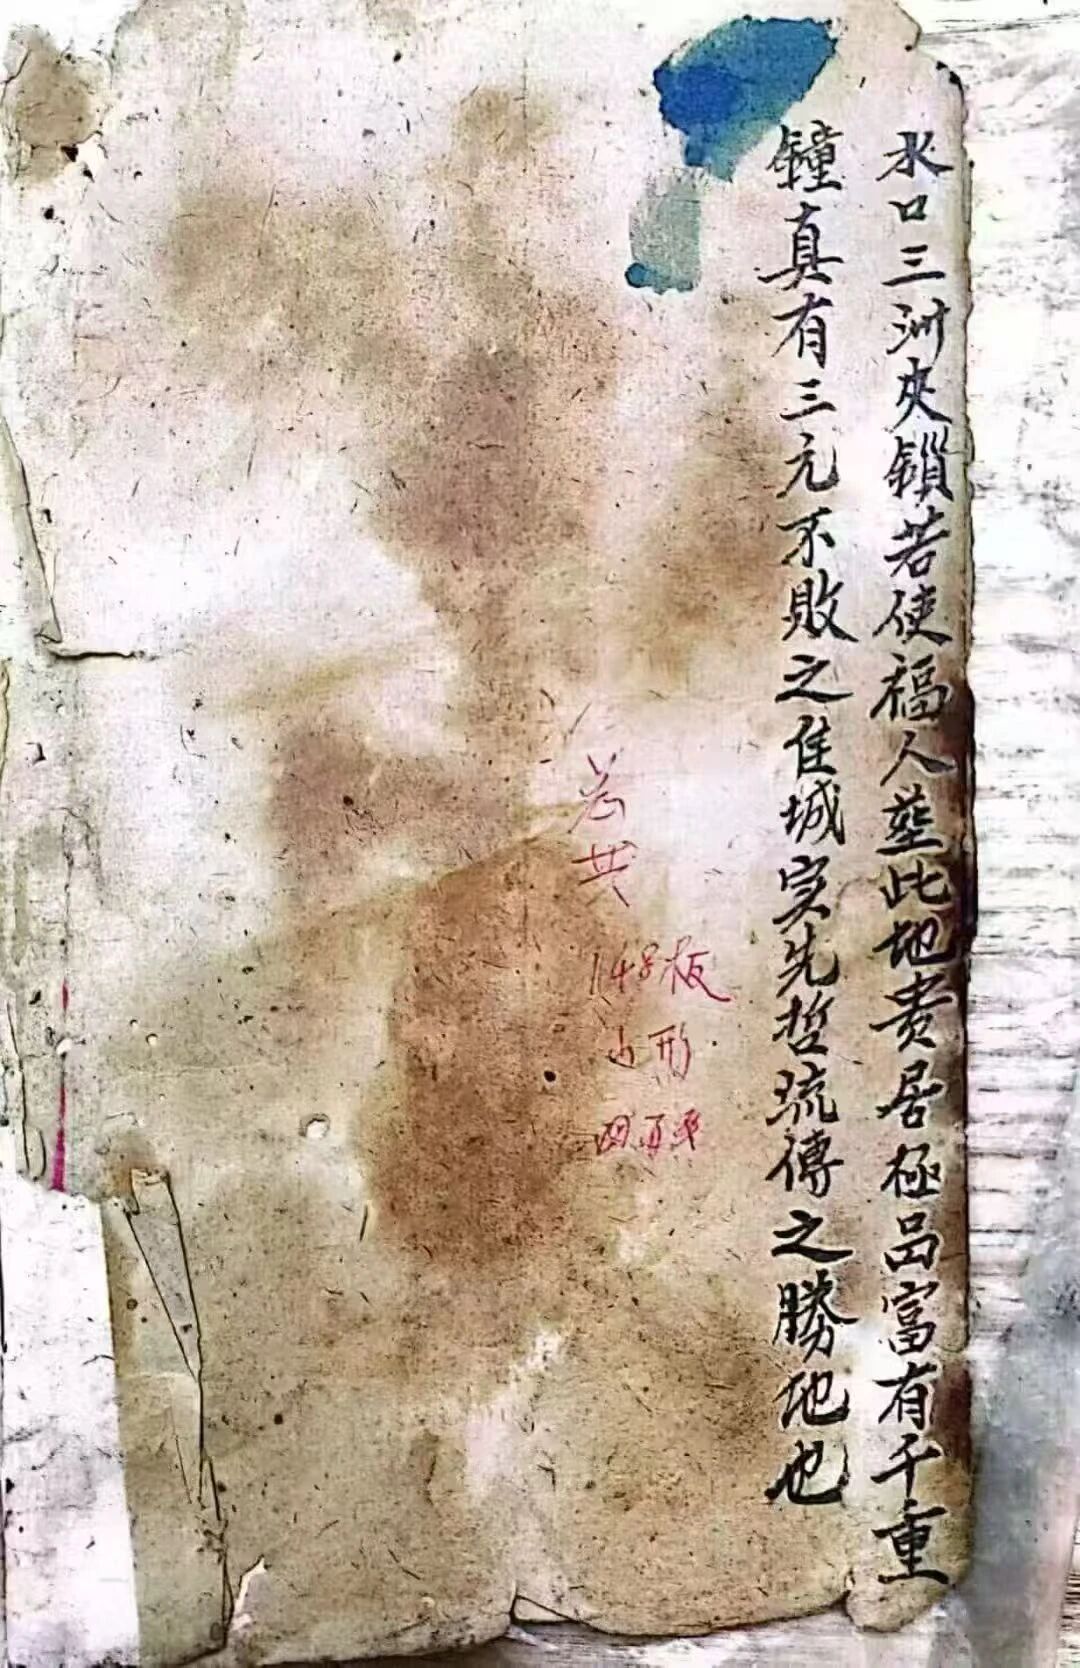 水口三洲夾鎖若使福人塟此地贵居極品富有千重
鐘真有三元不敗之隹城实先哲流傳之勝地也
总共
148板
山形